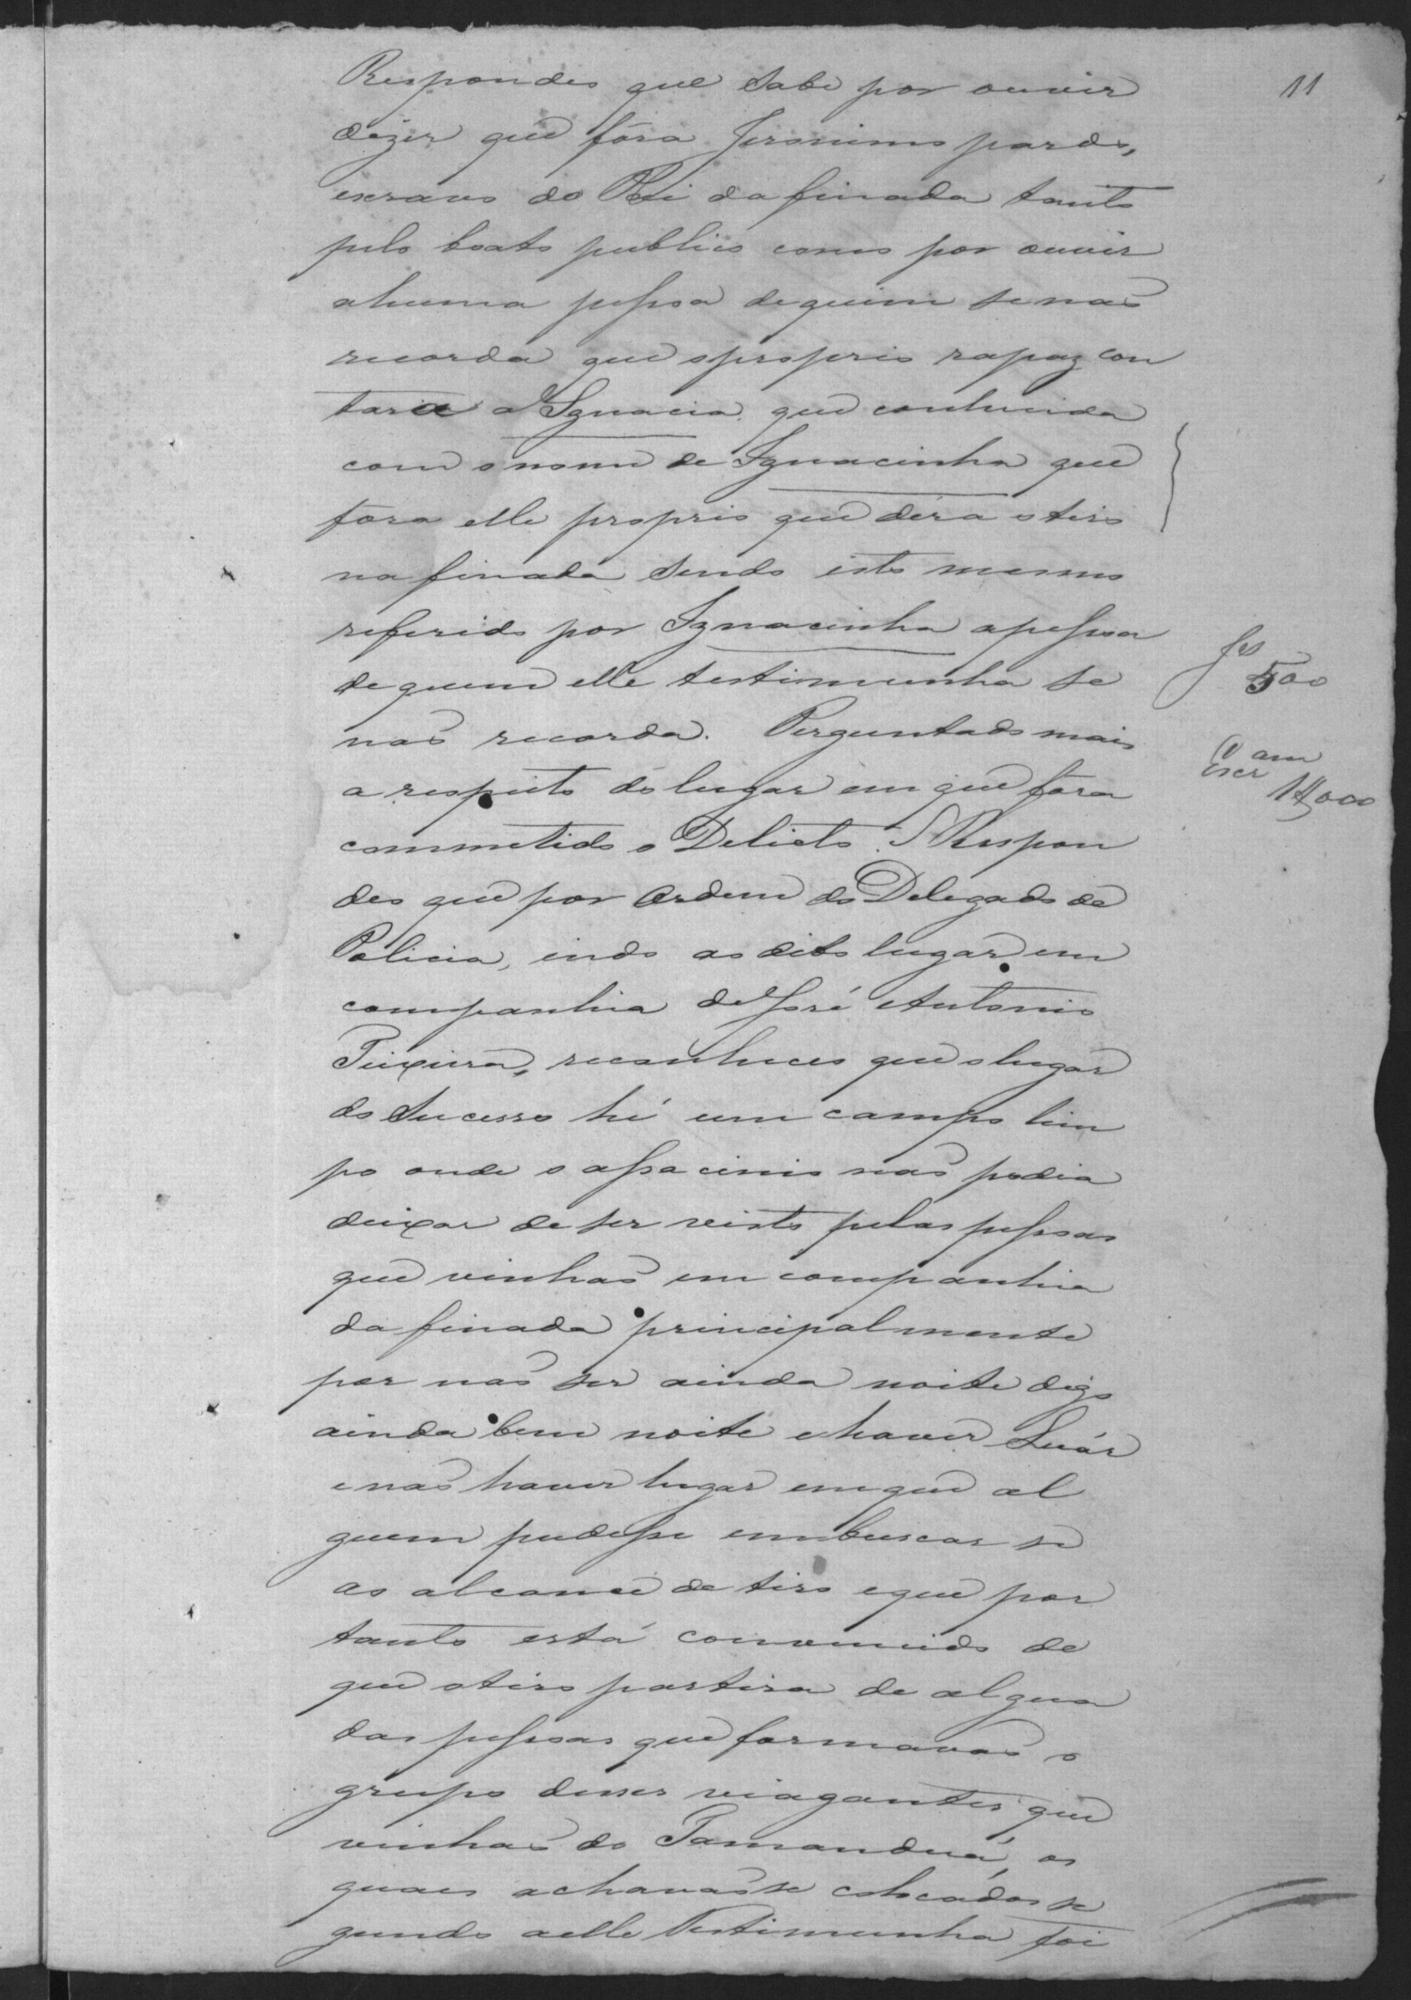 11
Respondes que sabe por ouvir
dizer que fôra Jeronimo pardo,
escravo do Pai da finada tanto
pelo boato publico como por ouvir
ahuma pessoa dequem senaõ
recorda que oproprio rapaz con
tara a Ignacia que conhecida
com onome de Ignacinha que
fora elle proprio que déra otiro
na finada sendo isto mesmo
referido por Ignacinha apessoa
dequem elle testimunha se
naõ recorda. Perguntado mais
a respeito do lugar em que fora
commetido o Delicto. Respon
deo que por Ordem do Delegado de
Policia, indo ao dito lugar em
companhia de José Antonio
Teixeira, reconheceo que olugar
do Sucesso hé um campo lim
po onde o assacino naõ podia
deixar de ser visto pelas pessoas
que vinhaõ em companhia
da finada principalmente
por naõ ser ainda noite digo
ainda bem noite ehaver Luár
enaõ haver lugar emque al
guem podesse embuscar se
ao alcance de tiro eque por
tanto está convencido de
que otiro partira de algua
das pessoas que formavaõ o
grupo desses viagantes que
vinhaõ do Tamanduá, os
quaes achavaõse colocados se
gundo aelle Testimunha foi
fls
500
am
escr
1$000